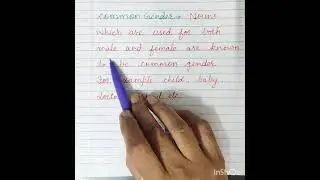 Common Gender :- Nouns
which are used for both
male and female are known
to be common gender
For example child, baby
doctor etc.
InShot